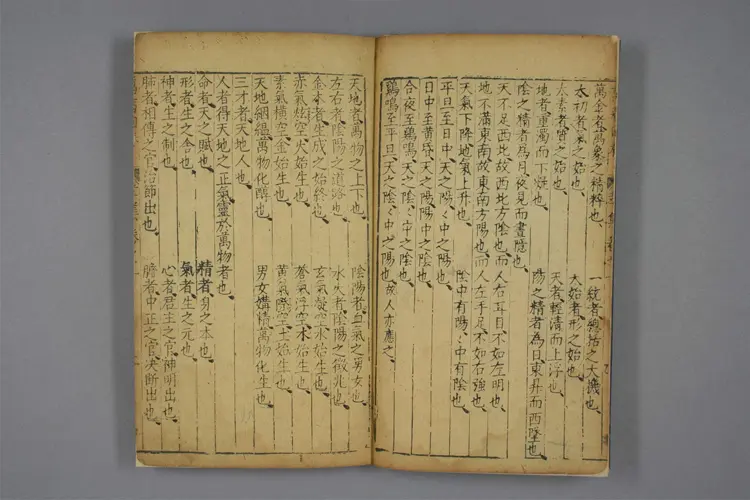 萬金者萬象之精粹也、一統者總括之大機也、
太初者氣之始也、太始者形之始也、
太素者質之始也、天者輕清而上浮也、
地者重濁而下凝也、陽之精者為日、東升而西墜也、
陰之精者為月、夜見而晝隱也、
天不足西北、故西北方陰也、而人右耳目、不如左明也、
地不滿東南、故東南方陽也、而人左手足、不如右強也、
天氣下降、地氣上升也、陰中有陽、〻中有陰也、
平旦至日中、天之陽、〻中之陽也、
日中至黃昏、天之陽、陽中之陰也、
合夜至鷄鳴、天之陰、〻中之陰也、
鷄鳴至平旦、天之陰、〻中之陽也、故人亦應之、
天地者萬物之上下也、陰陽者血氣之男女也、
左右者陰陽之道路也、水火者陰陽之徵兆也、
金木者生成之始終也、玄氣凝空水始生也、
赤氣炫空火始生也、蒼氣浮空木始生也、
素氣橫空金始生也、黃氣際空土始生也、
天地絪縕萬物化醇也、男女媾精萬物化生也、
三才者天地人也、
人者得天地之正氣靈於萬物者也、
命者天之賦也、精者身之本也、
形者生之舍也、氣者生之元也、
神者生之制也、心者君主之官神明出也、
肺者相傅之官治節出也、膽者中正之官決斷出也、